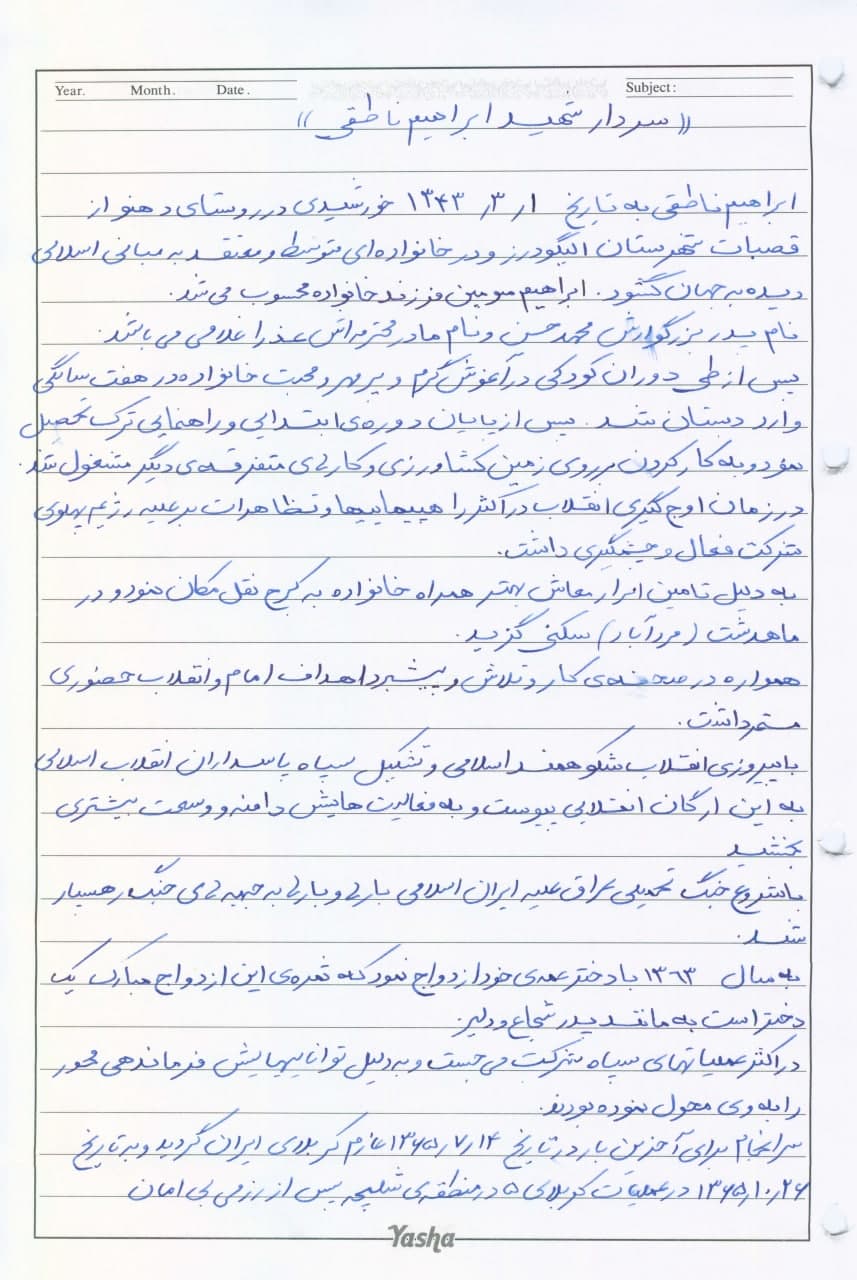 Year. Month. Date. Subject:
(( سردار شهید ابراهیم ناطقی ))
ابراهیم ناطقی به تاریخ ۱ر۳ر۱۳۴۳ خورشیدی در روستای دهنو از
قصبات شهرستان الیگودرز و در خانواده‌ای متوسط و معتقد به مبانی اسلامی
دیده به جهان گشود. ابراهیم سومین فرزند خانواده محسوب می‌شد.
نام پدر بزرگوارش محمدحسن و نام مادر محترمه‌اش عذرا غلامی می‌باشد.
پس از طی دوران کودکی در آغوش گرم و پر مهر و محبت خانواده در هفت سالگی
وارد دبستان شد. پس از پایان دوره‌ی ابتدایی و راهنمایی ترک تحصیل
نمود و به کار کردن بر روی زمین کشاورزی و کارهای متفرقه‌ی دیگر مشغول شد.
در زمان اوج‌گیری انقلاب در اکثر راهپیماییها و تظاهرات بر علیه رژیم پهلوی
شرکت فعال و چشمگیری داشت.
به دلیل تامین امرار معاش بهتر همراه خانواده به کرج نقل مکان نمود و در
ماهدشت (مردآباد) سکنی گزید.
همواره در صحنه‌ی کار و تلاش و پیشبرد اهداف امام و انقلاب حضوری
مستمر داشت.
با پیروزی انقلاب شکوهمند اسلامی و تشکیل سپاه پاسداران انقلاب اسلامی
به این ارگان انقلابی پیوست و به فعالیت هایش دامنه و وسعت بیشتری
بخشید
با شروع جنگ تحمیلی عراق علیه ایران اسلامی بارها و بارها به جبهه های جنگ رهسپار
شد.
به سال ۱۳۶۳ با دختر عمه‌ی خود ازدواج نمود که ثمره‌ی این ازدواج مبارک یک
دختر است به مانند پدر شجاع و دلیر.
در اکثر عملیاتهای سپاه شرکت می‌جست و به دلیل تواناییهایش فرماندهی محور
را به وی محول نموده بودند.
سرانجام برای آخرین بار در تاریخ ۱۴ر۷ر۱۳۶۵ عازم کربلای ایران گردید و به تاریخ
۲۶ر۱۰ر۱۳۶۵ در عملیات کربلای ۵ در منطقه‌ی شلمچه پس از رزمی بی امان
Yasha